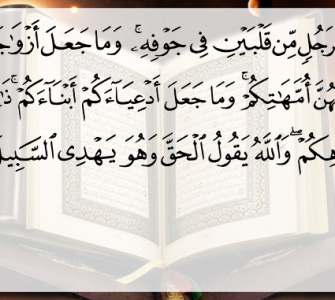 رَجُلٍ مِّن قَلْبَيْنِ فِى جَوْفِهِۦ ۚ وَمَا جَعَلَ أَزْوَٰجَ
هُنَّ أُمَّهَـٰتِكُمْ ۚ وَمَا جَعَلَ أَدْعِيَآءَكُمْ أَبْنَآءَكُمْ ۚ ذَٰلِ
هِكُمْ ۖ وَٱللَّهُ يَقُولُ ٱلْحَقَّ وَهُوَ يَهْدِى ٱلسَّبِيلَ